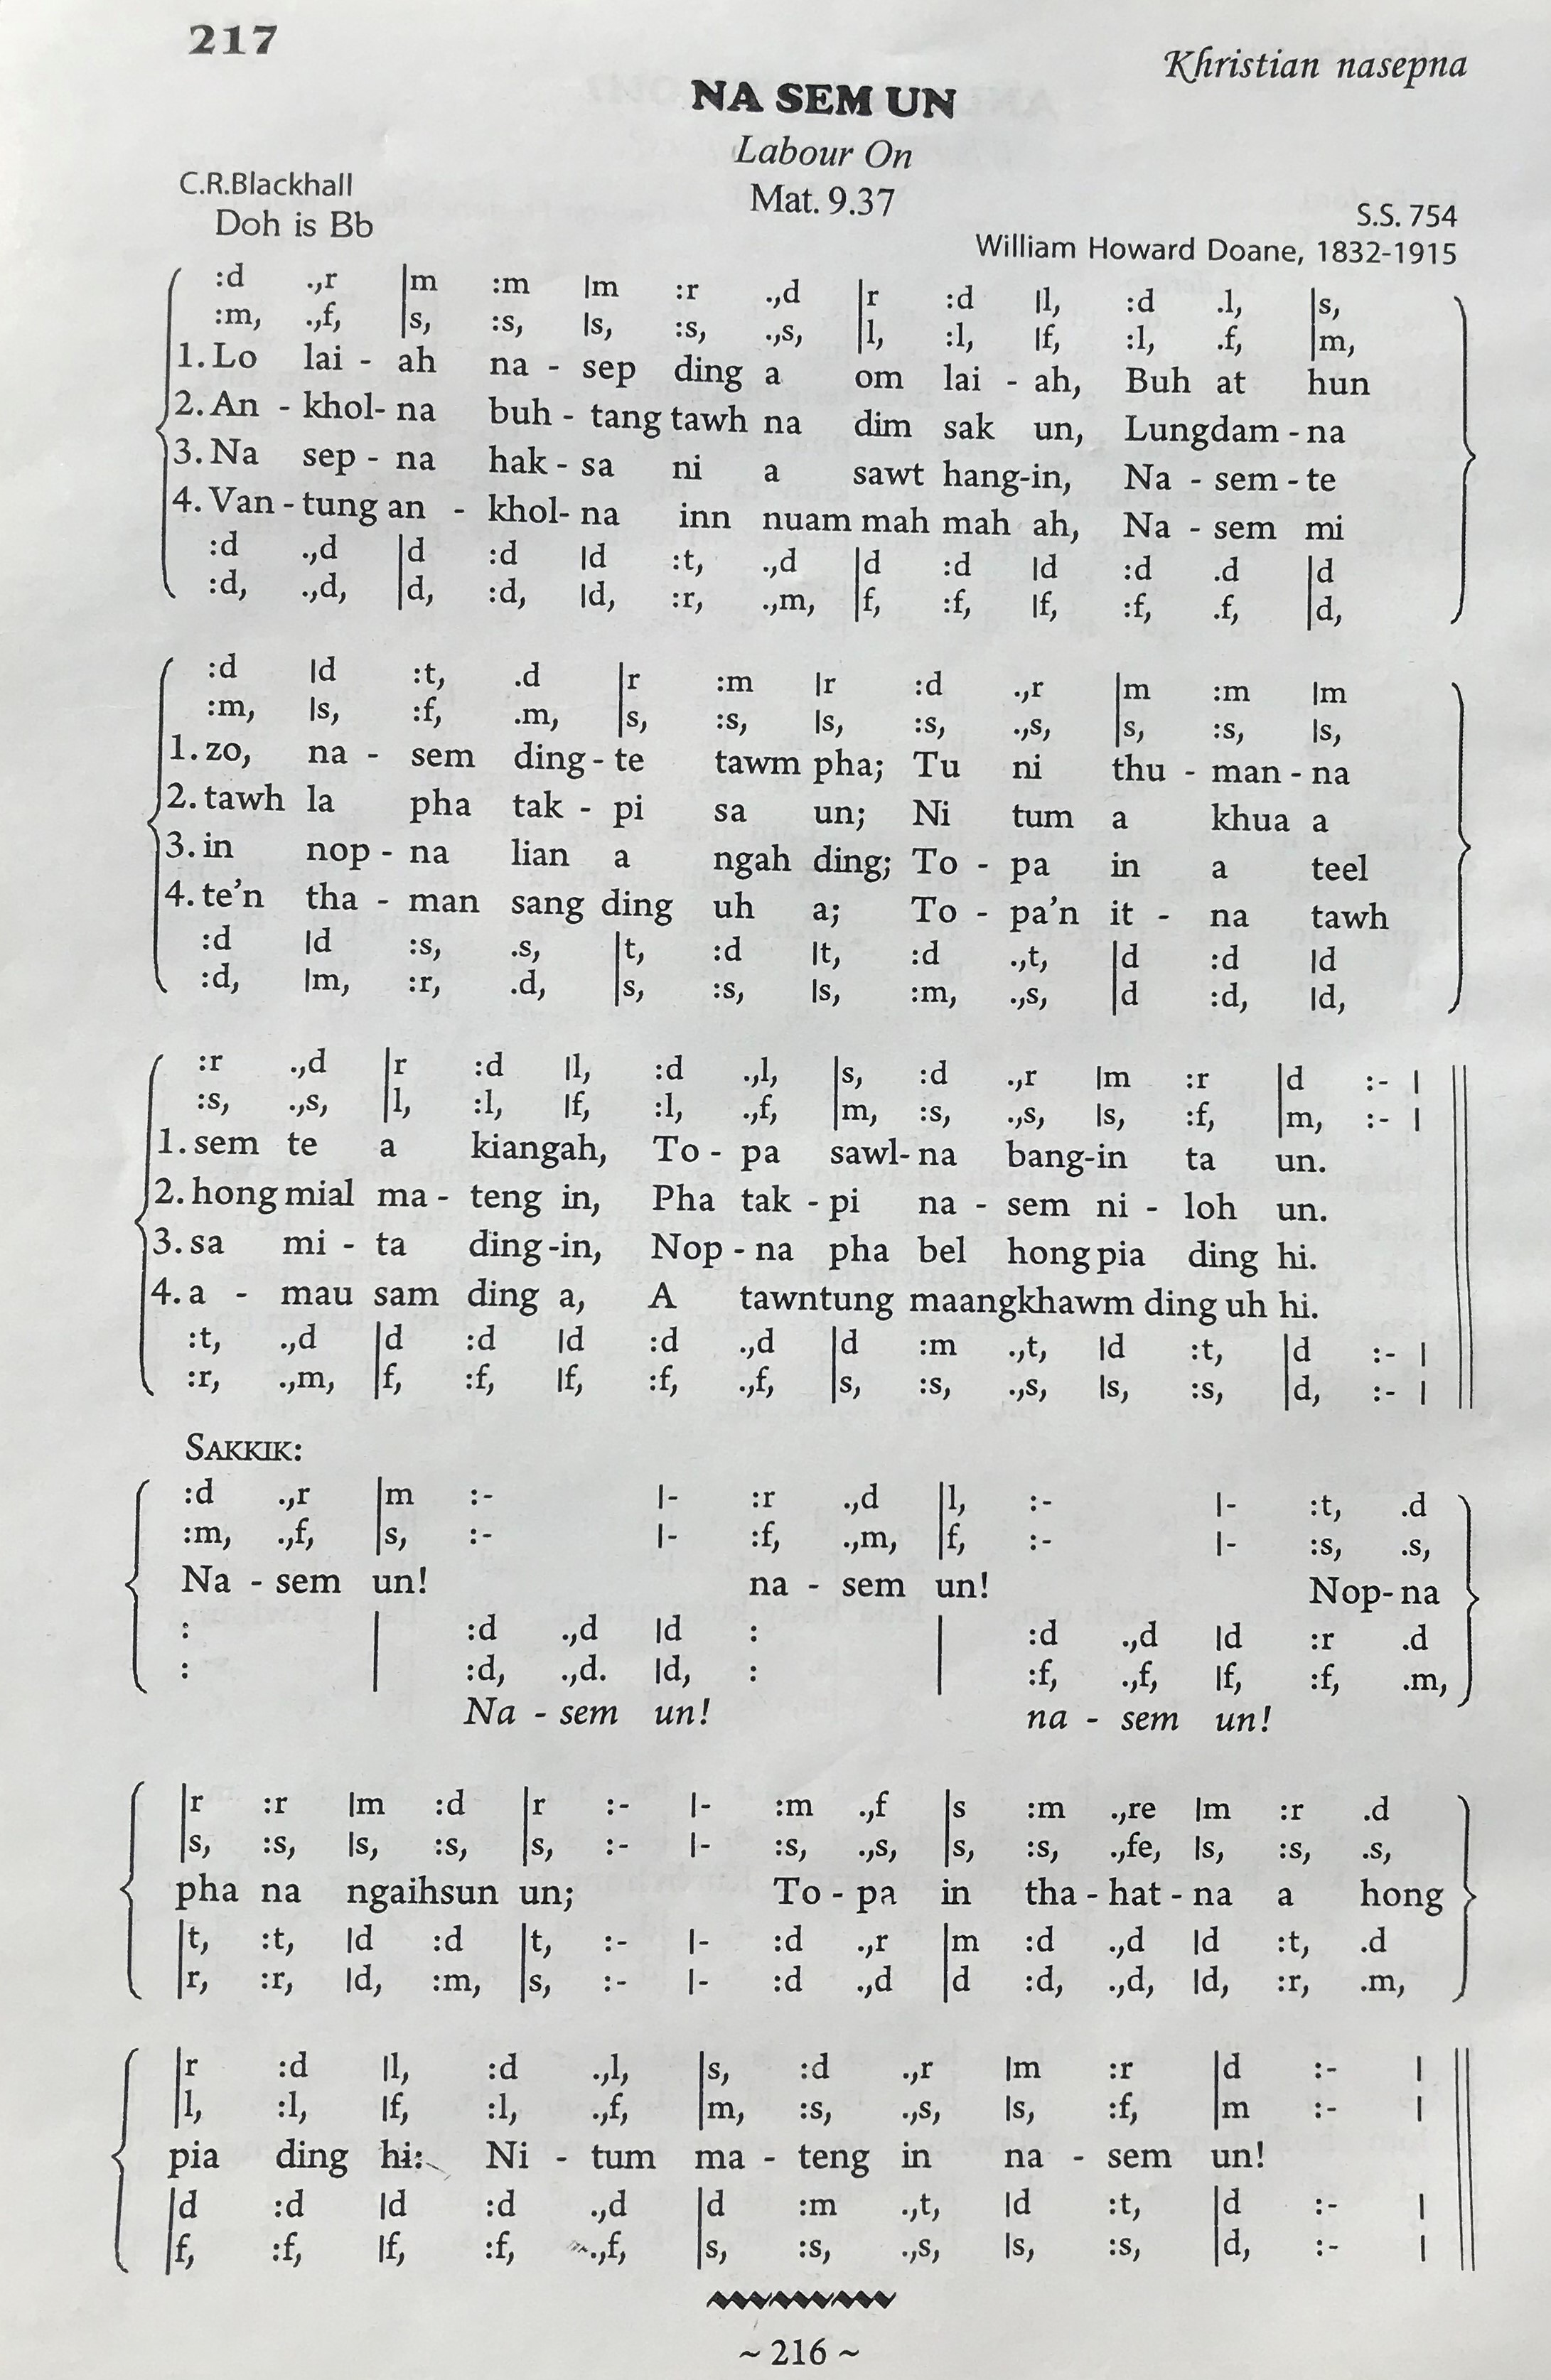 217
Khristian nasepna
NA SEM UN
Labour On
C.R.Blackhall
Mat. 9.37
Doh is Bb
S.S. 754
William Howard Doane, 1832-1915
:d .,r |m :m |m :r .,d |r :d |l, :d .l, |s,
:m, .,f, |s, :s, |s, :s, .,s, |l, :l, |f, :l, .f, |m,
1. Lo lai - ah na - sep ding a om lai - ah, Buh at hun
2. An - khol- na buh - tang tawh na dim sak un, Lungdam - na
3. Na sep - na hak - sa ni a sawt hang-in, Na - sem - te
4. Van - tung an - khol- na inn nuam mah mah ah, Na - sem mi
:d .,d |d :d |d :t, .,d |d :d |d :d .d |d
:d, .,d, |d, :d, |d, :r, .,m, |f, :f, |f, :f, .f, |d,
:d |d :t, .d |r :m |r :d .,r |m :m |m
:m, |s, :f, .m, |s, :s, |s, :s, .,s, |s, :s, |s,
1. zo, na - sem ding - te tawm pha; Tu ni thu - man - na
2. tawh la pha tak - pi sa un; Ni tum a khua a
3. in nop - na lian a ngah ding; To - pa in a teel
4. te'n tha - man sang ding uh a; To - pa'n it - na tawh
:d |d :s, .s, |t, :d |t, :d .,t, |d :d |d
:d, |m, :r, .d, |s, :s, |s, :m, .,s, |d :d, |d,
:r .,d |r :d |l, :d .,l, |s, :d .,r |m :r |d :- |
:s, .,s, |l, :l, |f, :l, .,f, |m, :s, .,s, |s, :f, |m, :- |
1. sem te a kiangah, To - pa sawl- na bang-in ta un.
2. hong mial ma - teng in, Pha tak - pi na - sem ni - loh un.
3. sa mi - ta ding-in, Nop - na pha bel hong pia ding hi.
4. a - mau sam ding a, A tawntung maangkhawm ding uh hi.
:t, .,d |d :d |d :d .,d |d :m .,t, |d :t, |d :- |
:r, .,m, |f, :f, |f, :f, .,f, |s, :s, .,s, |s, :s, |d, :- |
SAKKIK:
:d .,r |m :- |- :r .,d |l, :- |- :t, .d
:m, .,f, |s, :- |- :f, .,m, |f, :- |- :s, .s,
Na - sem un! na - sem un! Nop- na
: | :d .,d |d : | :d .,d |d :r .d
: | :d, .,d. |d, : | :f, .,f, |f, :f, .m,
Na - sem un! na - sem un!
|r :r |m :d |r :- |- :m .,f |s :m .,re |m :r .d
|s, :s, |s, :s, |s, :- |- :s, .,s, |s, :s, .,fe, |s, :s, .s,
pha na ngaihsun un; To - pa in tha - hat - na a hong
|t, :t, |d :d |t, :- |- :d .,r |m :d .,d |d :t, .d
|r, :r, |d, :m, |s, :- |- :d .,d |d :d, .,d, |d, :r, .m,
|r :d |l, :d .,l, |s, :d .,r |m :r |d :- |
|l, :l, |f, :l, .,f, |m, :s, .,s, |s, :f, |m :- |
pia ding hi: Ni - tum ma - teng in na - sem un!
|d :d |d :d .,d |d :m .,t, |d :t, |d :- |
|f, :f, |f, :f, .,f, |s, :s, .,s, |s, :s, |d, :- |
~ 216 ~